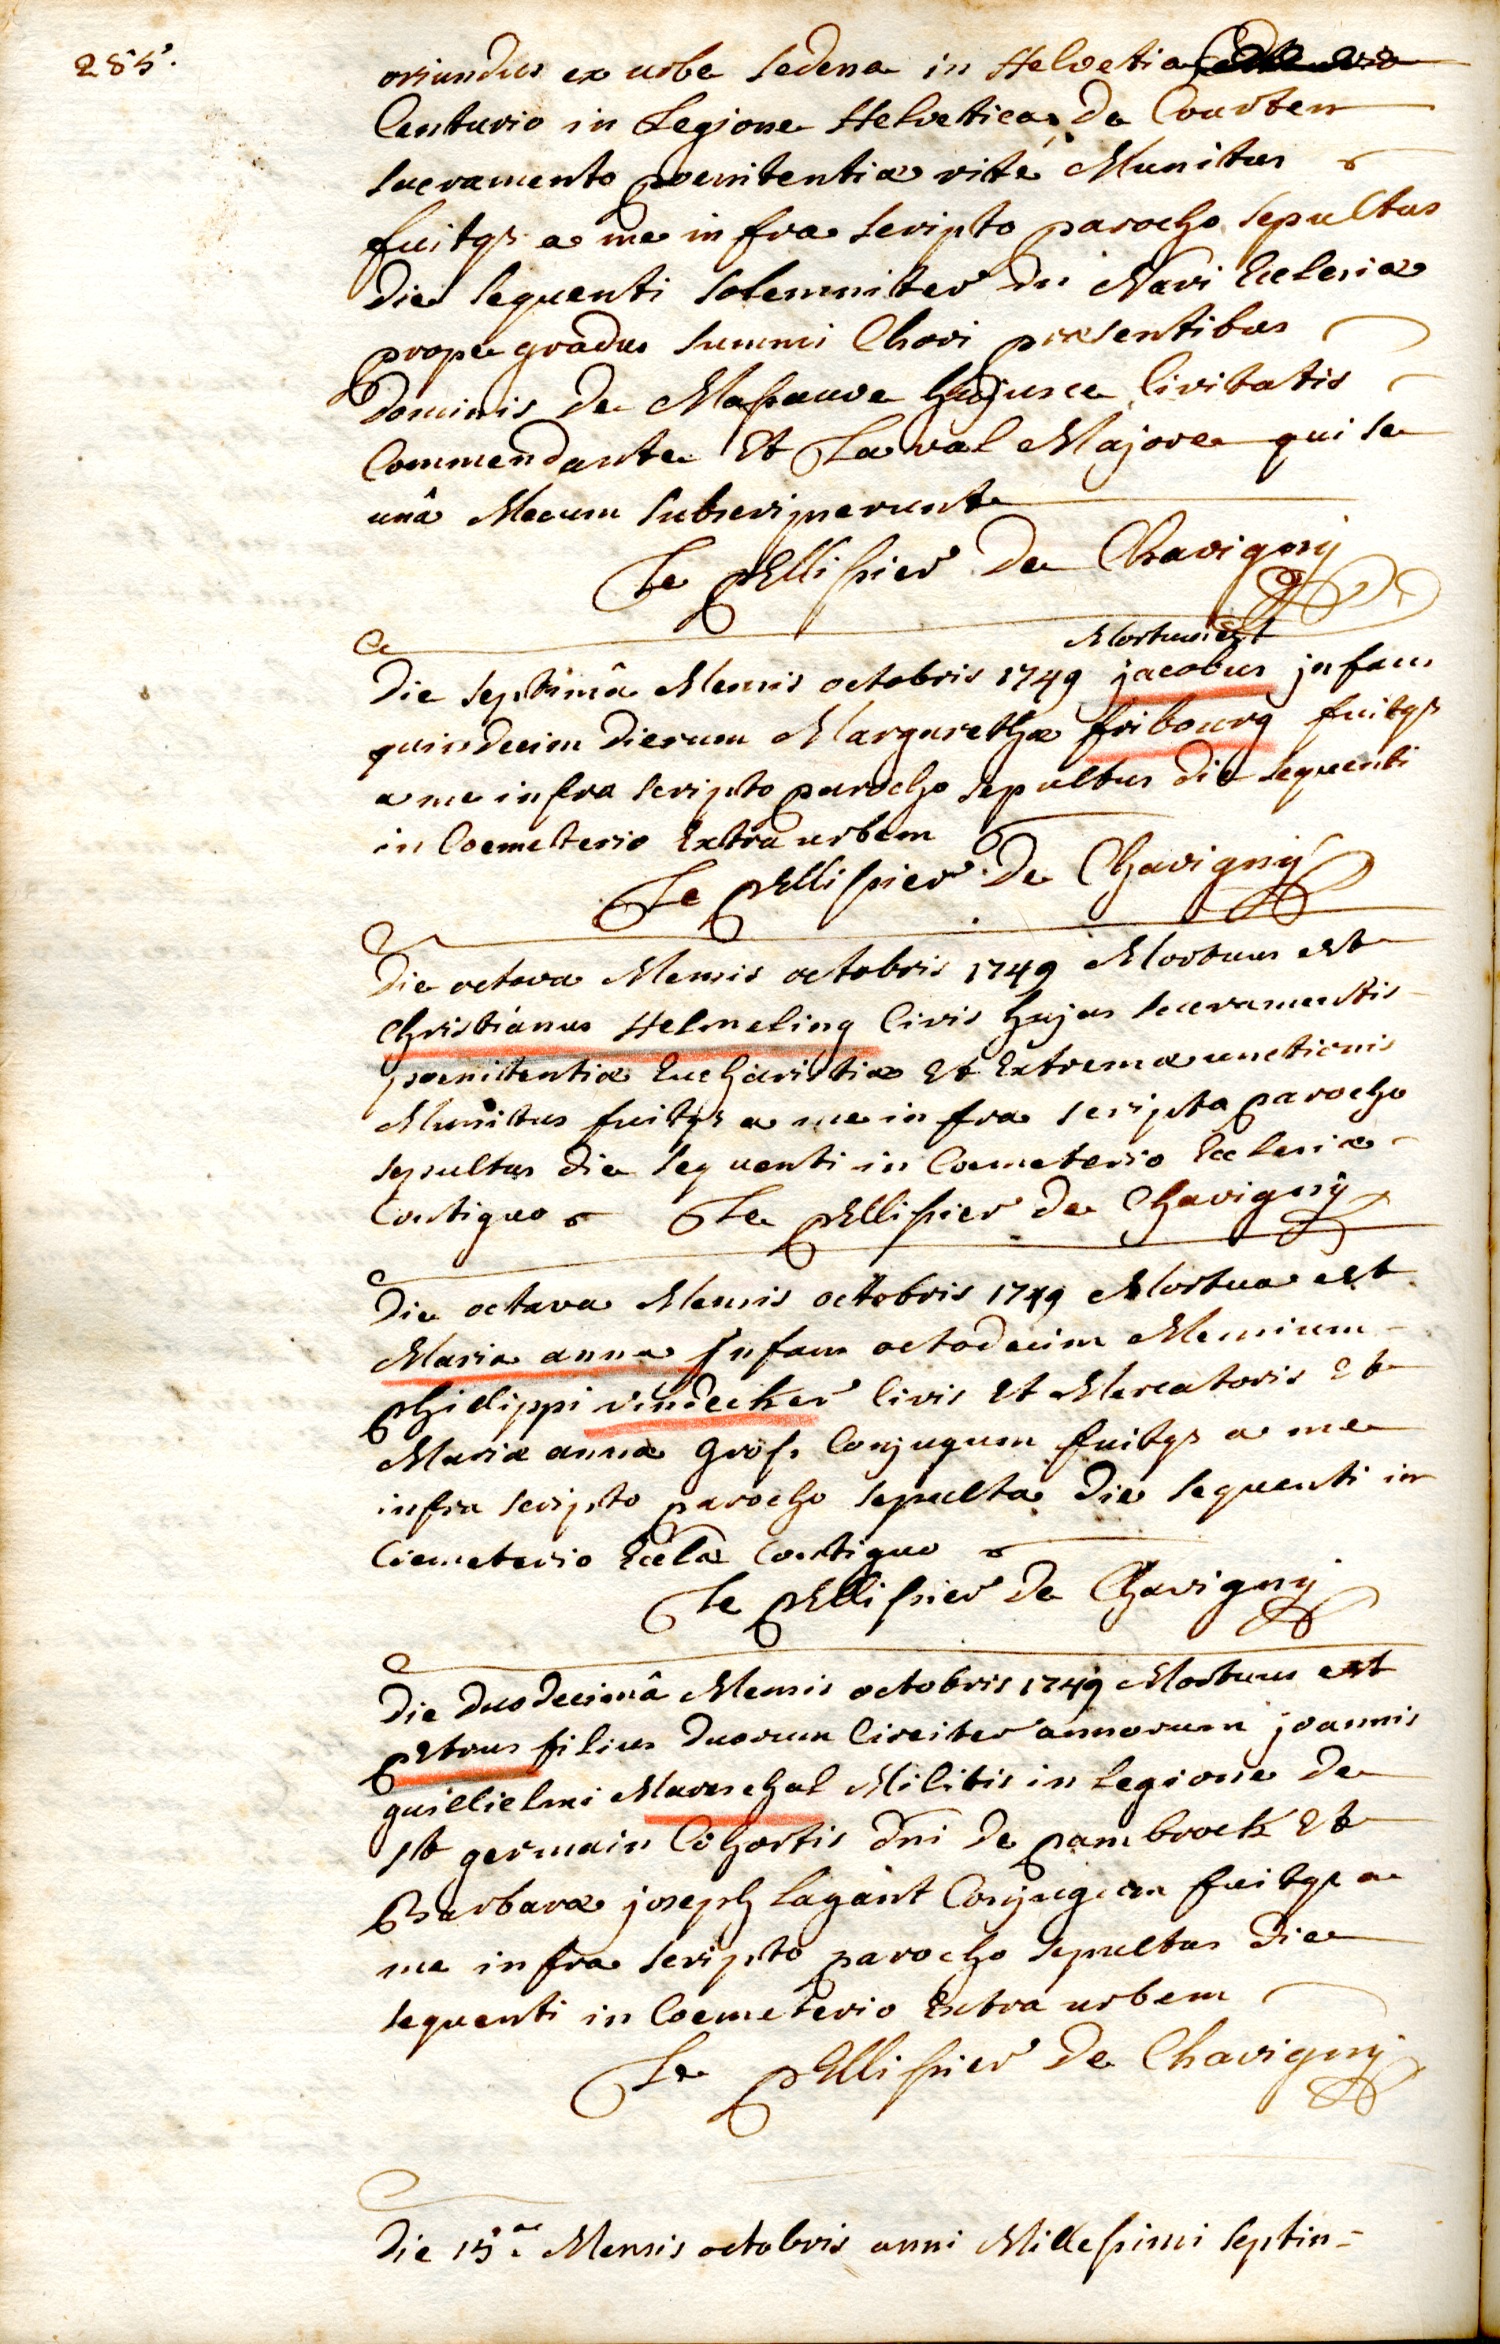 285.
oriundus ex urbe Sedena in Helvetia
Centurio in Legione Helvetica De Courten
sacramento poenitentiæ rité Munitus
fuitqs a me infra scripto parocho sepultus
die sequenti solemniter in Navi Ecclesiæ
prope gradus summi Chori præsentibus
Dominis De Massauve hujusce Civitatis
Commendante Et Larval Majore qui se
unâ Mecum subscripserunt
Le pEllissier De Chavigny
Mortuus est
Die septimâ Mensis octobris 1749 jacobus jnfans
quindecim Dierum Margarethæ fribourg fuitqs
a me infra scripto parocho sepultus die sequenti
in Coemeterio Extra urbem
Le pEllissier De Chavigny
Die octava Mensis octobris 1749 Mortuus est
Christianus Helmeling Civis hujus sacramentis
poenitentiæ Eucharistiæ Et Extremæ unctionis
Munitus fuitqs a me infra scripto parocho
sepultus die sequenti in Coemeterio Ecclesiæ
Contiguo Le pEllissier De Chavigny
Die octava Mensis octobris 1749 Mortua est
Maria anna Jnfans octodecim Mensium
philippi vindecker Civis Et Mercatoris Et
Mariæ annæ Gross Conjugum fuitqs a me
infra scripto parocho sepulta die sequenti in
Coemeterio Ecclæ Contiguo
Le pEllissier De Chavigny
Die duodecimâ Mensis octobris 1749 Mortuus est
pEtrus filius duorum Circiter annorum joannis
guillielmi Mareschal Militis in Legione De
st germain Cohortis dni De pambrock Et
Barbaræ joseph Lagant Conjugum fuitqs a
me infra scripto parocho sepultus die
sequenti in Coemeterio Extra urbem
Le pEllissier De Chavigny
Die 15.ae Mensis octobris anni Millessimi septin=